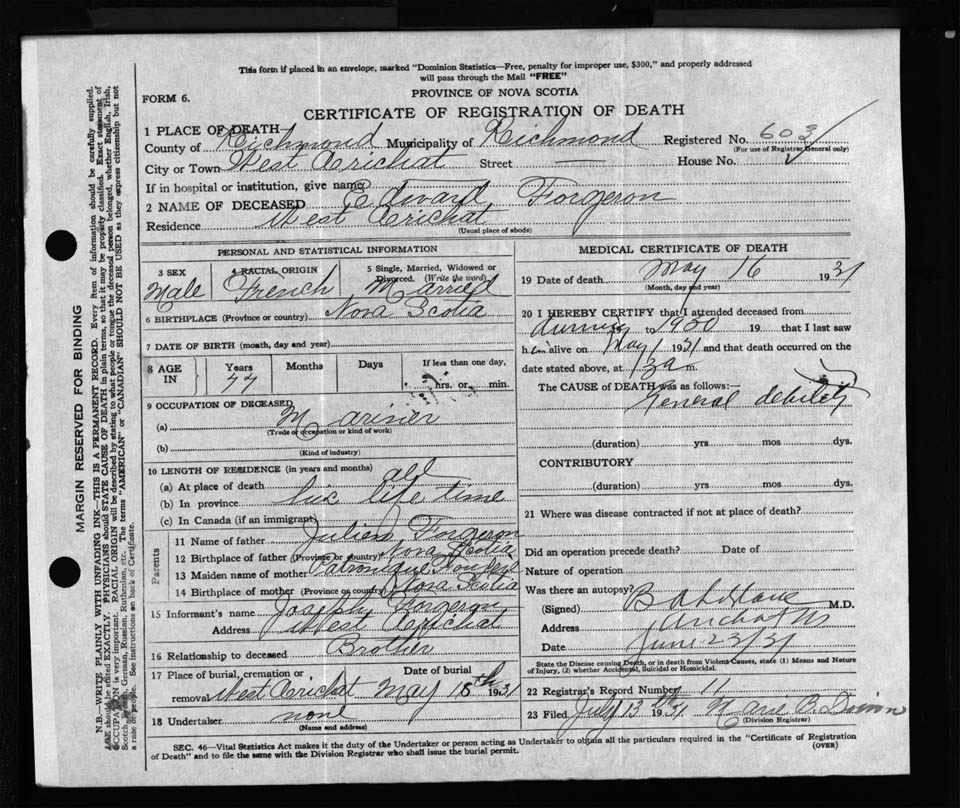 This form if placed in an envelope, marked "Dominion Statistics—Free, penalty for improper use, $300," and properly addressed
will pass through the Mail "FREE"
PROVINCE OF NOVA SCOTIA
FORM 6.
CERTIFICATE OF REGISTRATION OF DEATH
1 PLACE OF DEATH
County of Richmond Municipality of Richmond Registered No. 603
(For use of Registrar General only)
City or Town West Arichat Street — House No.
If in hospital or institution, give name
2 NAME OF DECEASED Edward Forgeron
Residence West Arichat
(Usual place of abode)
PERSONAL AND STATISTICAL INFORMATION
3 SEX Male
4 RACIAL ORIGIN French
5 Single, Married, Widowed or Divorced. (Write the word) Married
6 BIRTHPLACE (Province or country) Nova Scotia
7 DATE OF BIRTH (month, day and year)
8 AGE IN Years 44 Months Days If less than one day, hrs. or min.
9 OCCUPATION OF DECEASED
(a) Mariner
(Trade or occupation or kind of work)
(b)
(Kind of industry)
10 LENGTH OF RESIDENCE (in years and months)
(a) At place of death all
(b) In province his life time
(c) In Canada (if an immigrant)
Parents
11 Name of father Julien Forgeron
12 Birthplace of father (Province or country) Nova Scotia
13 Maiden name of mother
14 Birthplace of mother (Province or country) Nova Scotia
15 Informant's name Joseph Forgeron
Address West Arichat
16 Relationship to deceased Brother
17 Place of burial, cremation or removal West Arichat Date of burial May 18th 1931
18 Undertaker none
(Name and address)
MEDICAL CERTIFICATE OF DEATH
19 Date of death May 16 1931
(Month, day and year)
20 I HEREBY CERTIFY that I attended deceased from
during to 1930 19 that I last saw
him alive on May 1 1931 and that death occurred on the
date stated above, at m.
The CAUSE of DEATH was as follows:—
General debility
(duration) yrs. mos dys.
CONTRIBUTORY
(duration) yrs. mos dys.
21 Where was disease contracted if not at place of death?
Did an operation precede death? Date of
Nature of operation
Was there an autopsy?
(Signed) M.D.
Address Arichat NS
Date June 23/31
State the Disease causing Death, or in death from Violent Causes, state (1) Means and Nature
of Injury, (2) whether Accidental, Suicidal or Homicidal.
22 Registrar's Record Number 11
23 Filed July 13th 1931 Marie B.
(Division Registrar)
SEC. 46—Vital Statistics Act makes it the duty of the Undertaker or person acting as Undertaker to obtain all the particulars required in the "Certificate of Registration
of Death" and to file the same with the Division Registrar who shall issue the burial permit. (OVER)
MARGIN RESERVED FOR BINDING
N.B.—WRITE PLAINLY WITH UNFADING INK—THIS IS A PERMANENT RECORD. Every item of information should be carefully supplied.
AGE should be stated EXACTLY. PHYSICIANS should STATE CAUSE OF DEATH in plain terms, so that it may be properly classified. Exact statement of
OCCUPATION is very important. RACIAL ORIGIN will be described by stating to what people or tongue the deceased person belonged, whether English, Irish,
Scotch, German, Russian, Ruthenian, etc. The terms "AMERICAN" or "CANADIAN" SHOULD NOT BE USED as they express citizenship but not
a race or people. See instructions on back of Certificate.